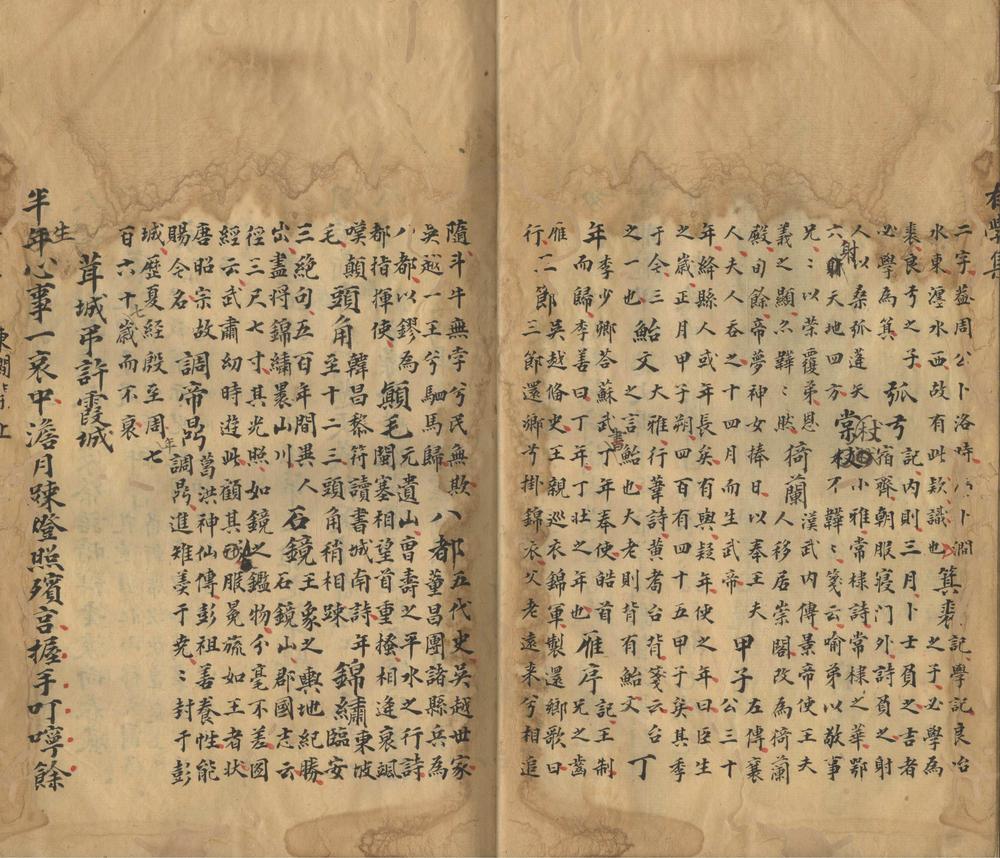 有學集
二字益周公卜洛時八卜澗
水東瀍水西故有此欵識也箕裘記學記良冶
裘良弓之子孤兮之子必學為
必學為箕宿齊朝服寢門外詩負之射
人以桑弧蓬矢記內則三月卜士負之吉者
六射天地四方棠棣小雅常棣詩常棣之華鄂
兄以榮覆弟恩不韡韡箋云喻弟以敬事
義之顯亦韡韡然倚蘭漢武內傳景帝使王夫
殿旬餘帝夢神女捧日以奉王夫人移居崇閣改為倚蘭
人夫人吞之十四月而生武帝甲子左傳襄
年絳縣人或年長矣有與疑年使之年曰臣生公三十
之歲正月甲子朔四百有四十五甲子矣其季
于今三鮐文大雅行葦詩黃耇台背箋云台
之一也之言鮐也大老則背有鮐文丁
年李少卿答蘇武書丁年奉使皓首
而歸李善曰丁年丁壯之年也雁序記王制
雁行二節吳越俻史王親巡衣錦軍製還鄉歌曰兄之齒
三節還鄉兮掛錦衣父老遠來兮相追
隨斗牛無孛兮民無欺八都五代史吳越世家
吳越一王兮駟馬歸董昌團諸縣兵為
八都以鏐為顛毛元遺山曹壽之平水之行詩
都指揮使閩塞相望首重搔相逢衰颯
嘆顛頭角韓昌黎符讀書城南詩年
毛至十二三頭角稍相踈錦繡東坡
三絕句五百年間異人石鏡王象之輿地紀勝
出盡將錦繡裹山川石鏡山郡國志云
徑三尺七寸其光照如鏡之鑑物分毫不差圖
經云武肅幼時遊此顧其形服冕旒如王者狀
唐昭宗故調帝鼎葛洪神仙傳彭祖善養性能
賜今名調鼎進雉羹于堯堯封于彭
城歷夏經殷至周年七
百六十七歲而不衰
茸城弔許霞城
半年心事一哀中澹月踈燈照殯宮握手叮嚀餘
生